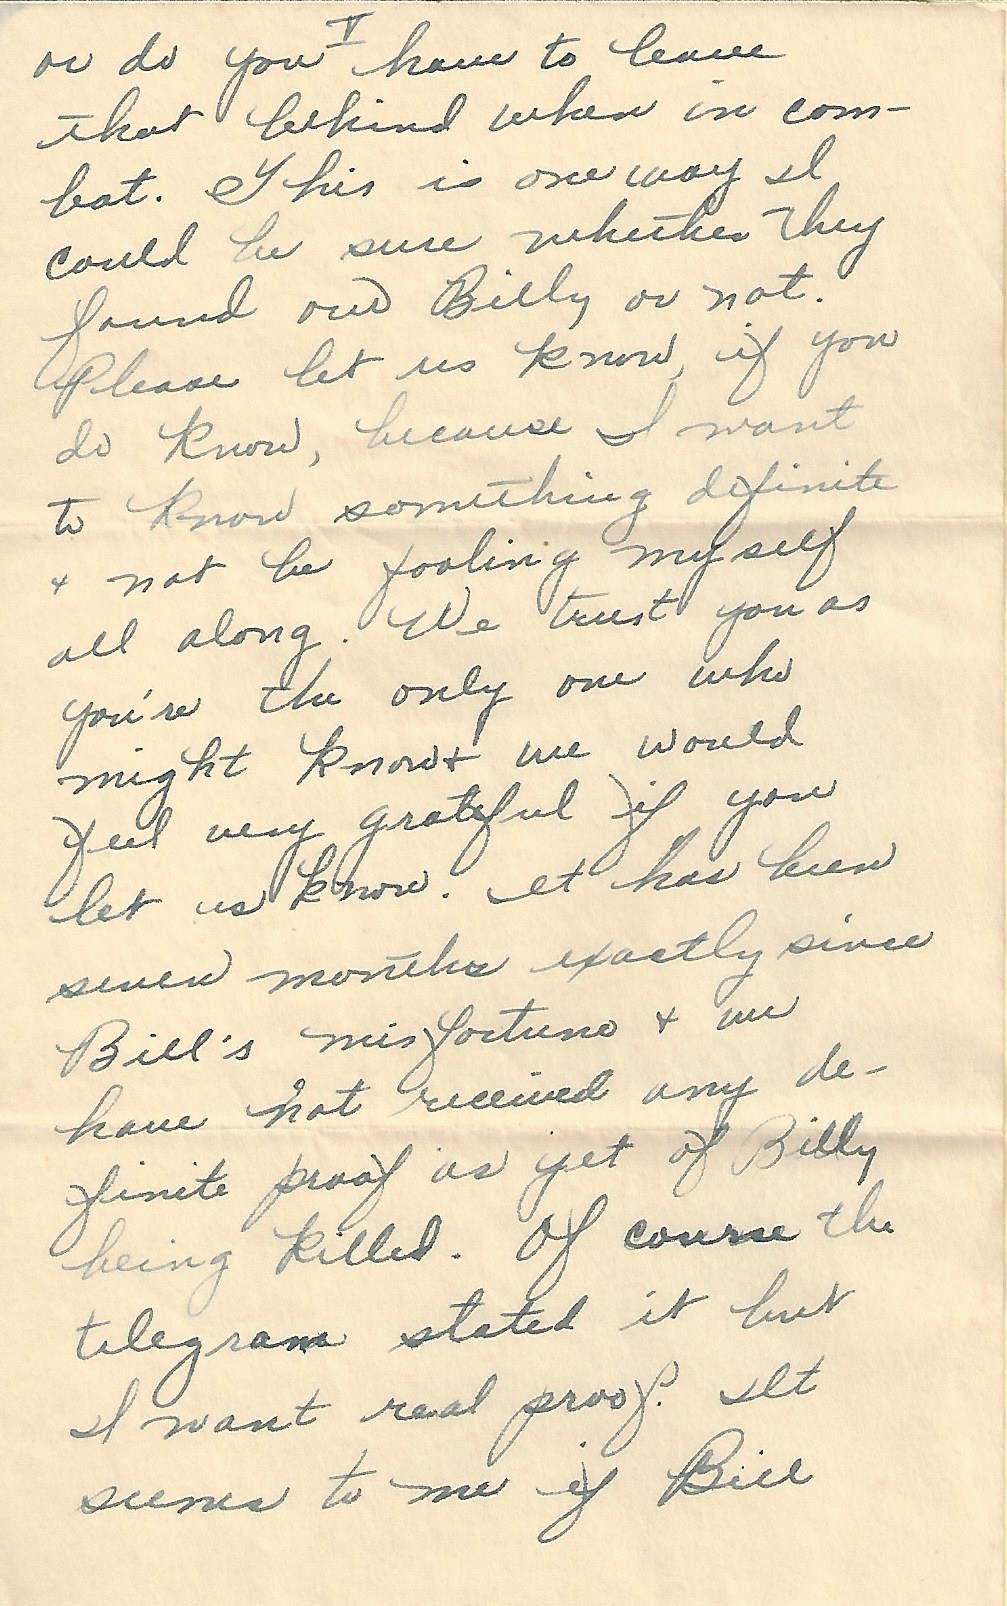 V
or do you have to leave
that behind when in com-
bat. This is one way I
could be sure whether they
found our Billy or not.
Please let us know, if you
do know, because I want
to know something definite
& not be fooling myself
all along. We trust you as
you're the only one who
might know & we would
feel very grateful if you
let us know. It has been
seven months exactly since
Bill's misfortune & we
have not received any de-
finite proof as yet of Billy
being killed. Of course the
telegram stated it but
I want real proof. It
seems to me if Bill